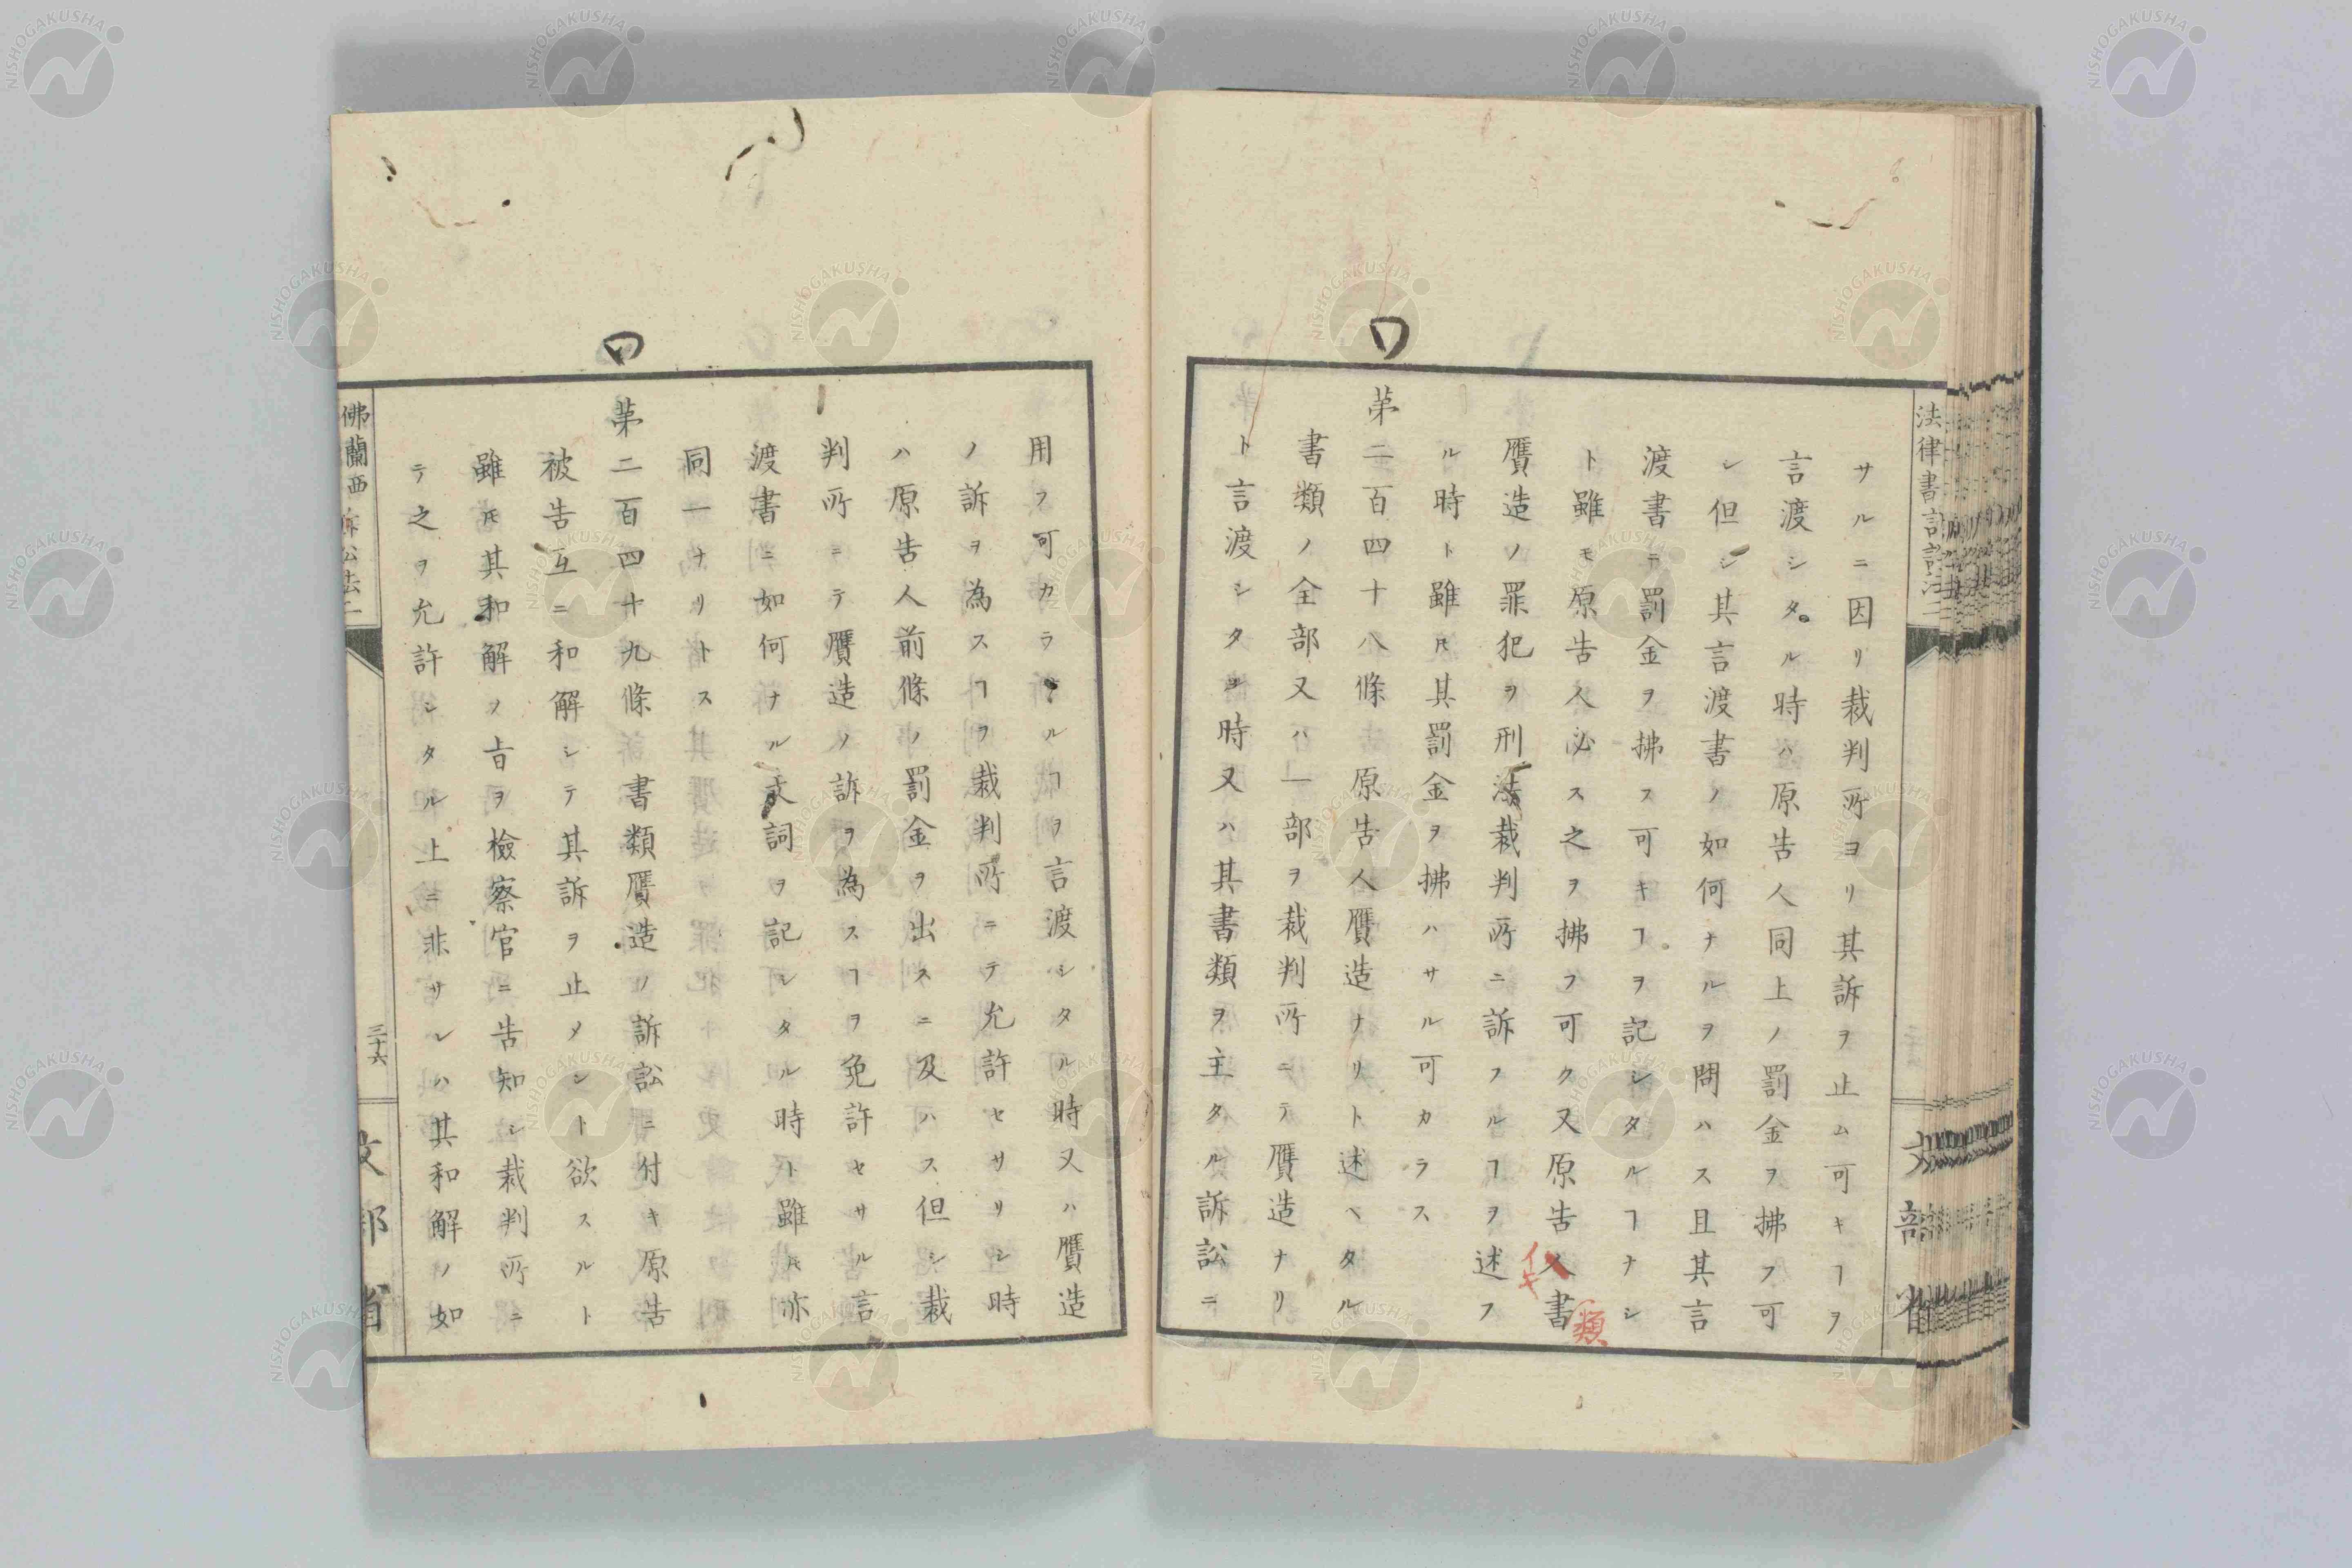 サルニ因リ裁判所ヨリ其訴ヲ止ム可キヿヲ
言渡シタル時ハ原告人同上ノ罰金ヲ拂フ可
シ但シ其言渡書ノ如何ナルヲ問ハス且其言
渡書ニ罰金ヲ拂フ可キヿヲ記シタルヿナシ
ト雖モ原告人必ス之ヲ拂フ可ク又原告人書
イキ
類
贋造ノ罪犯ヲ刑法裁判所ニ訴フルヿヲ述フ
ル時ト雖𪜈其罰金ヲ拂ハサル可カラス
苐二百四十八條 原告人贋造ナリト述ヘタル
書類ノ全部又ハ一部ヲ裁判所ニテ贋造ナリ
ト言渡シタル時又ハ其書類ヲ主タル訴訟ニ
法律書
文部省
用フ可カラサルヿヲ言渡シタル時又ハ贋造
ノ訴ヲ為スヿヲ裁判所ニテ允許セサリシ時
ハ原告人前條ノ罰金ヲ出スニ及ハス但シ裁
判所ニテ贋造ノ訴ヲ為スヿヲ免許セサル言
渡書ニ如何ナル文詞ヲ記シタル時ト雖𪜈亦
同一ナリトス
苐二百四十九條 書類贋造ノ訴訟ニ付キ原告
被告互ニ和解シテ其訴ヲ止メント欲スルト
雖𪜈其和解ノ旨ヲ檢察官ニ告知シ裁判所ニ
テ之ヲ允許シタル上ニ非サレハ其和解ノ如
佛蘭西訴訟法二
三十六
文部省